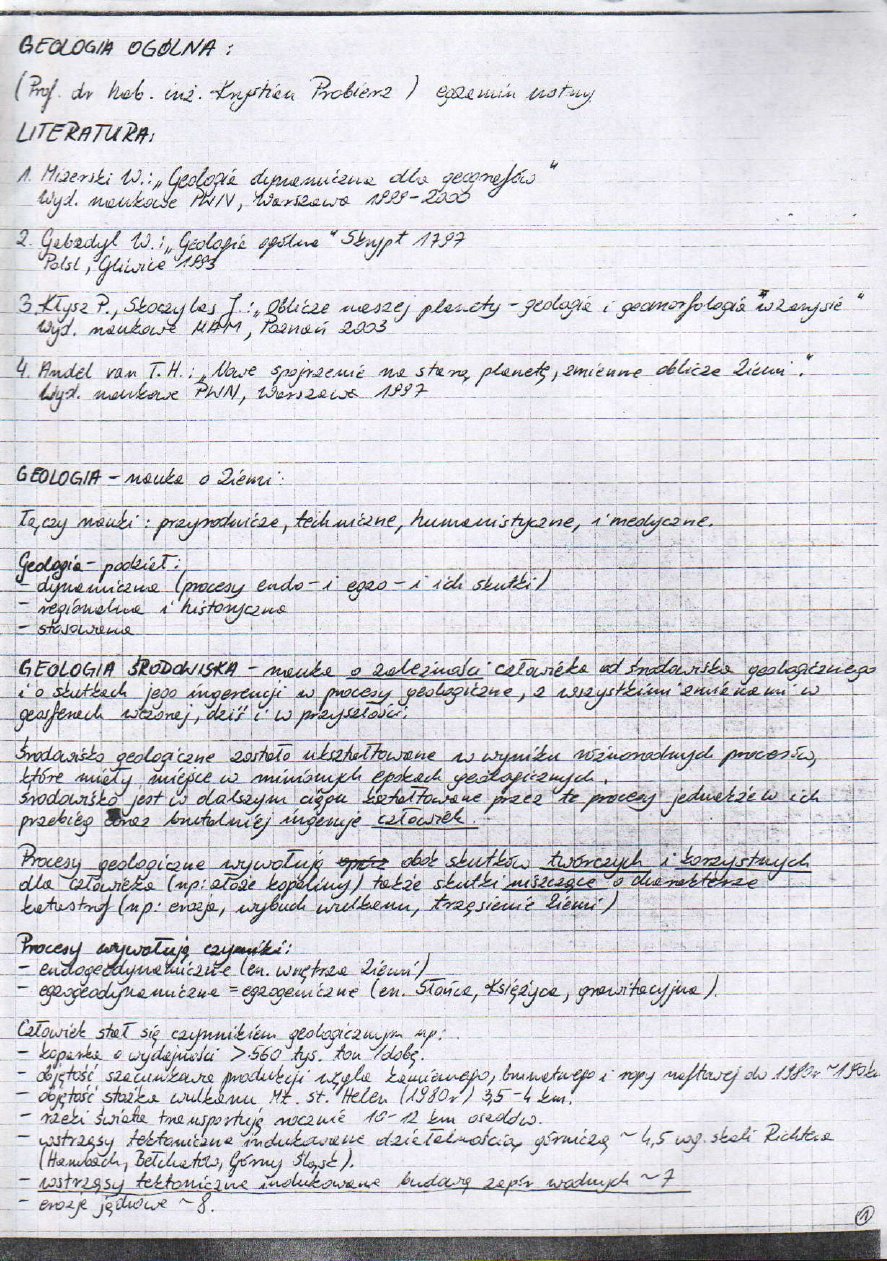 GEOLOGIA OGÓLNA:
(Prof. dr hab. inż. Krystian Probierz) egzamin ustny
LITERATURA:
1. Mizerski W.: „Geologia dynamiczna dla geografów"
Wyd. naukowe PWN, Warszawa 1999-2000
2. Gabzdyl W.: „Geologia ogólna" Skrypt 1797
Polsl, Gliwice 1993
3. Kłysz P., Skoczylas J.: „Oblicze naszej planety - geologia i geomorfologia w zarysie"
Wyd. naukowe UAM, Poznań 2003
4. Andel van T. H.: „Nowe spojrzenie na starą planetę, zmienne oblicze Ziemi."
Wyd. naukowe PWN, Warszawa 1997
GEOLOGIA - nauka o Ziemi:
Łączy nauki: przyrodnicze, techniczne, humanistyczne, i medyczne.
Geologia - podział:
- dynamiczna (procesy endo- i egzo- i ich skutki)
- regionalna i historyczna
- stosowana
GEOLOGIA ŚRODOWISKA - nauka o zależności człowieka od środowiska geologicznego
i o skutkach jego ingerencji w procesy geologiczne, z wszystkimi zmianami w
geosferach wczoraj, dziś i w przyszłości.
Środowisko geologiczne zostało ukształtowane w wyniku różnorodnych procesów,
które miały miejsce w minionych epokach geologicznych.
Środowisko jest w dalszym ciągu kształtowane przez te procesy jednakże w ich
przebieg coraz brutalniej ingeruje człowiek.
Procesy geologiczne wywołują obok skutków twórczych i korzystnych
dla człowieka (np: złoże kopaliny) także skutki niszczące o charakterze
katastrof (np: erozja, wybuch wulkanu, trzęsienie Ziemi)
Procesy wywołują czynniki:
- endogeodynamiczne (en. wnętrza Ziemi)
- egzogeodynamiczne = egzogeniczne (en. Słońca, Księżyca, grawitacyjna).
Człowiek stał się czynnikiem geologicznym np:
- koparka o wydajności > 560 tys. ton /dobę.
- objętość szacunkowa produkcji węgla kamiennego, brunatnego i ropy naftowej do 1980r ~190km
- objętość stożka wulkanu Mt. st. Helen (1980r) 3,5-4 km.
- rzeki świata transportują rocznie 10-12 km osadów.
- wstrząsy tektoniczne indukowane działalnością górniczą ~ 4,5 wg. skali Richtera
(Hambach, Bełchatów, Górny Śląsk).
- wstrząsy tektoniczne indukowane budową zapór wodnych ~ 7
- erozje jądrowe ~ 8.
1